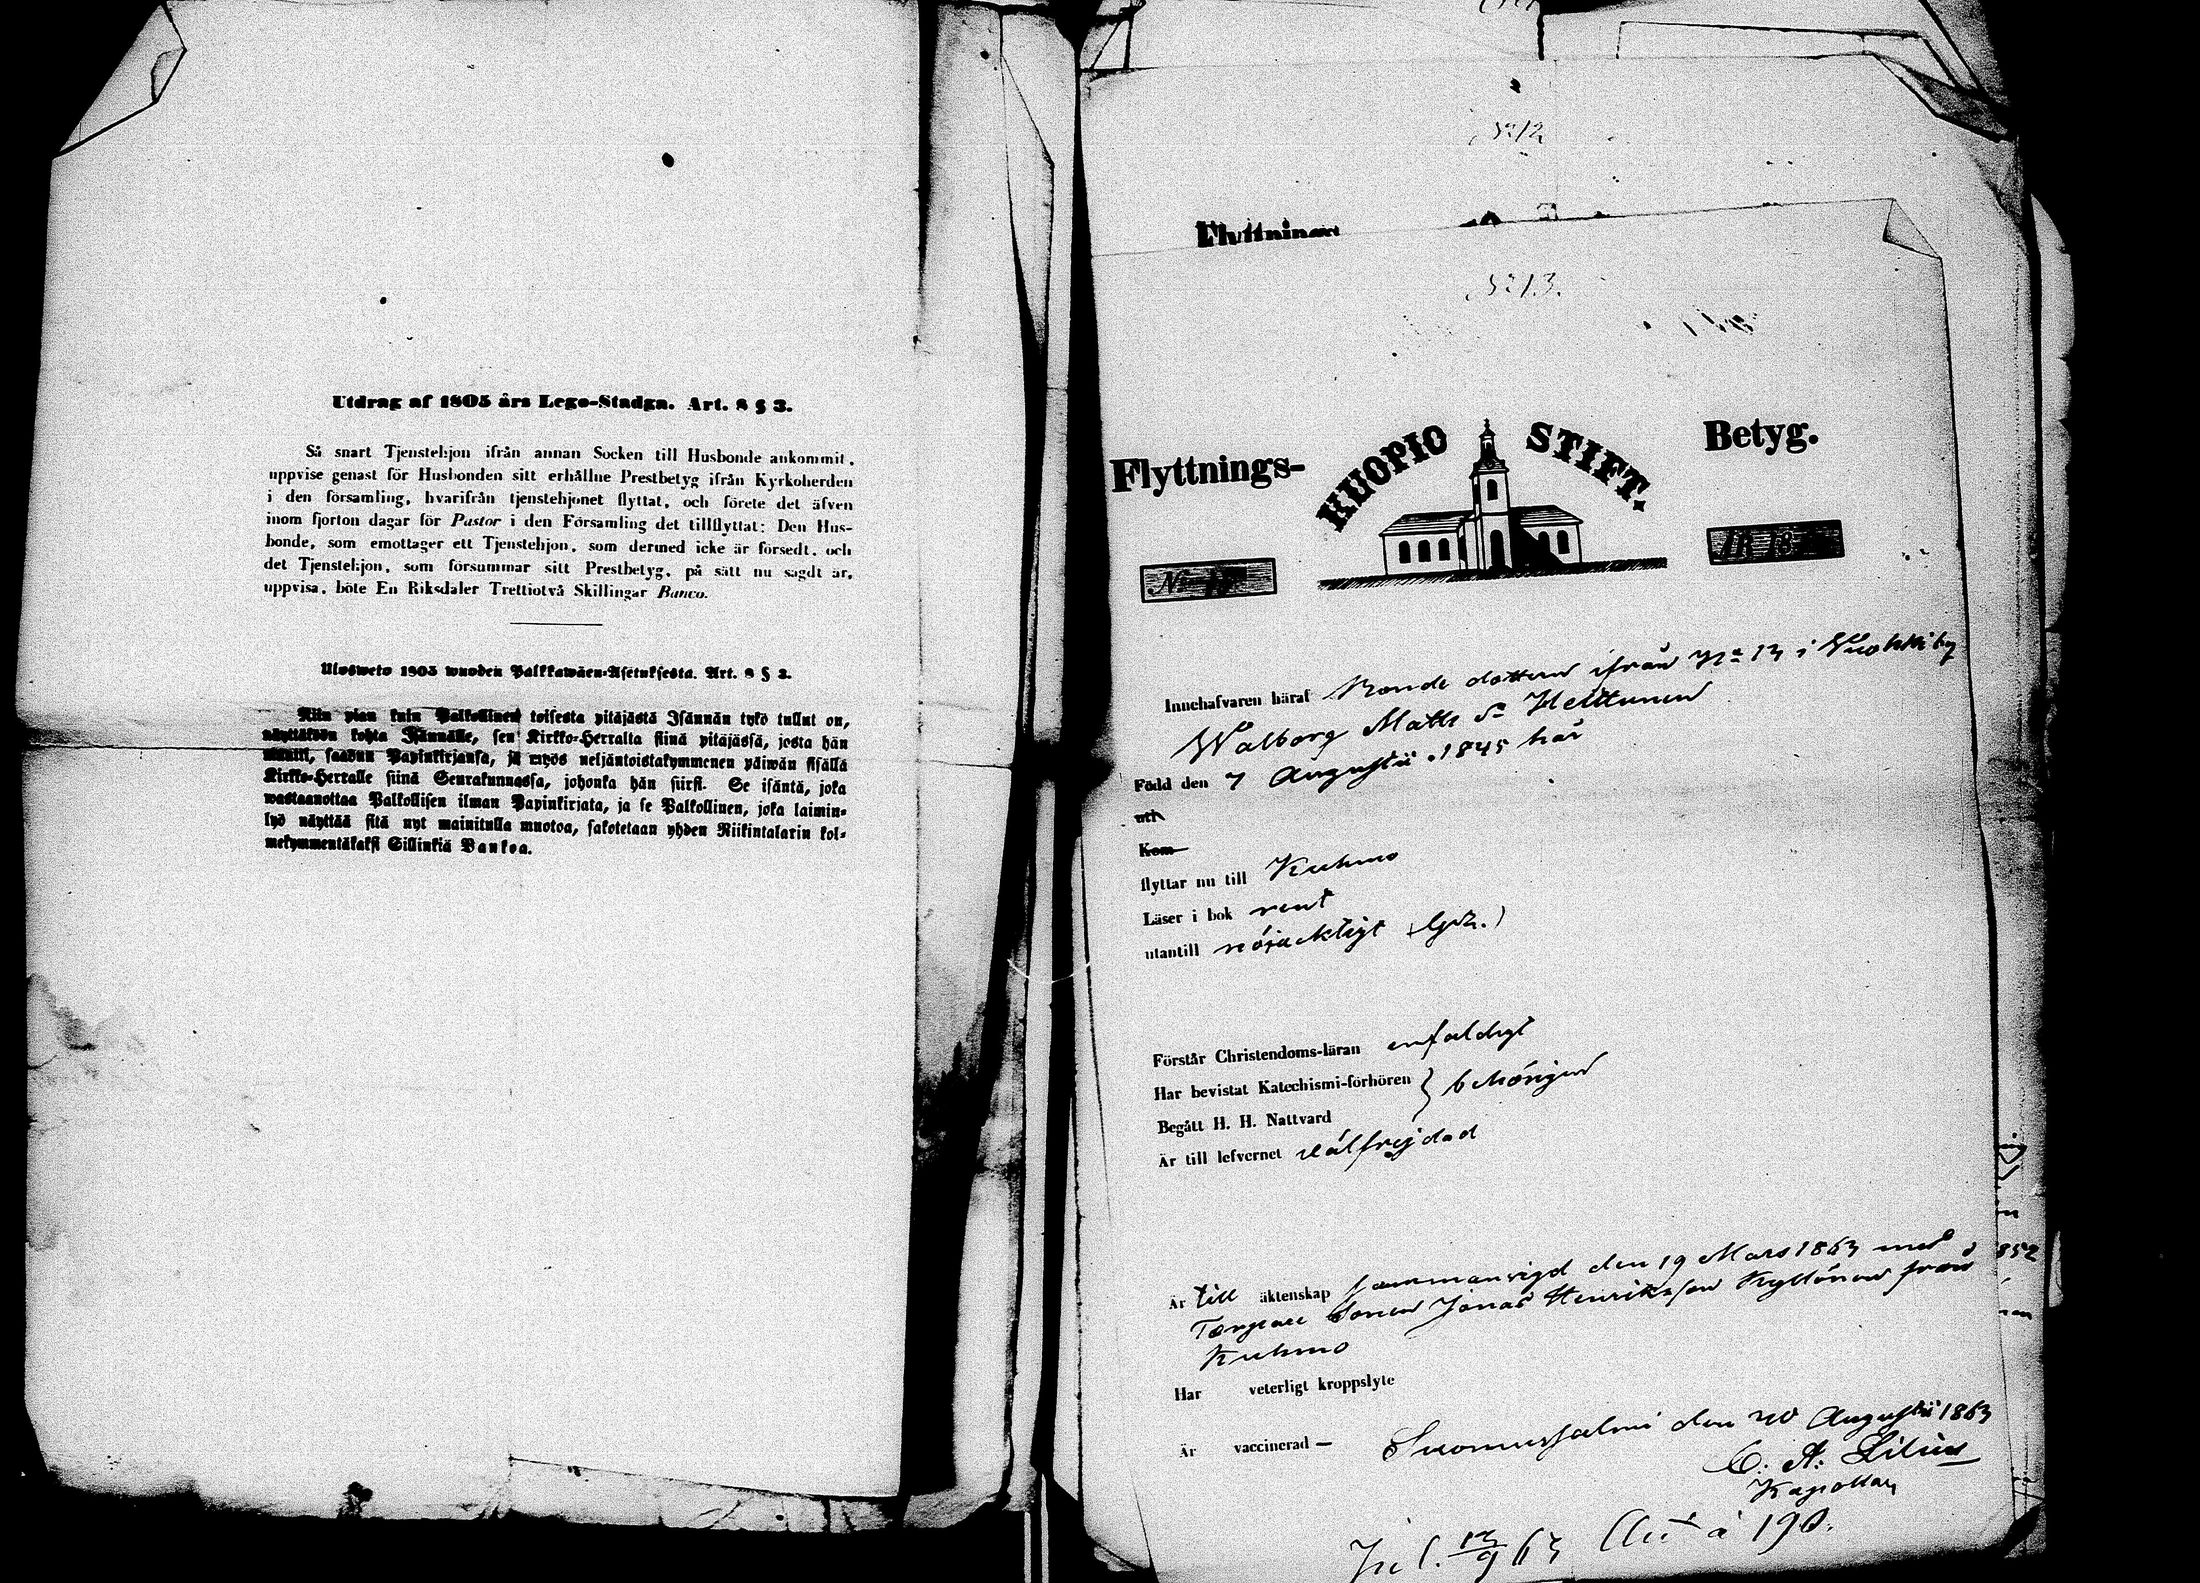 Utdrag af 1805 års Lego-Stadga. Art. 8 § 3.
Så snart Tjenstehjon ifrån annan Socken till Husbonde ankommit,
uppvise genast för Husbonden sitt erhållne Prestbetyg ifrån Kyrkoherden
i den församling, hvarifrån tjenstehjonet flyttat, och förete det äfven
inom fjorton dagar för Pastor i den Församling det tillflyttat: Den Hus-
bonde, som emottager ett Tjenstehjon, som dermed icke är försedt, och
det Tjenstehjon, som försummar sitt Prestbetyg, på sätt nu sagdt är,
uppvisa, böte En Riksdaler Trettiotvå Skillingar Banco.
Ulosweto 1805 wuoden Palkkawäen-Asetuksesta. Art. 8 § 3.
Niin pian kuin Palkollinen toisesta pitäjästä Isännän tykö tullut on,
näyttäköön kohta Isännälle, sen Kirkko-Herralta siinä pitäjässä, josta hän
muutti, saadun Papinkirjansa, ja myös neljäntoistakymmenen päiwän sisällä
Kirkko-Herralle siinä Seurakunnassa, johonka hän siirsi. Se isäntä, joka
wastaanottaa Palkollisen ilman Papinkirjata, ja se Palkollinen, joka laimin-
lyö näyttää sitä nyt mainitulla muotoa, sakotetaan yhden Riikintalarin kol-
mekymmentäkaksi Sillinkiä Bankoa.
No 12
Flyttnings
No 13.
Flyttnings- KUOPIO STIFT. Betyg.
Innehafvaren häraf Bonde dottren ifrån No 13 i Vuokki by
Walborg Matts dr Heikkinen
Född den 7 Augusti 1845 har
uti
Kom
flyttar nu till Kuhmo
Läser i bok rent
utantill nöjacktigt
Förstår Christendoms-läran enfaldigt
Har bevistat Katechismi-förhören } behörigen
Begått H. H. Nattvard
Är till lefvernet välfrejdad
Är till äktenskap sammanvigd den 19 Mars 1863 med
Torpare Sonen Jonas Henriksson Kyllönen från
Kuhmo
Har veterligt kroppslyte
Är vaccinerad —
Suomussalmi den 20 Augusti 1863
C. A. Lilius
Kapellan